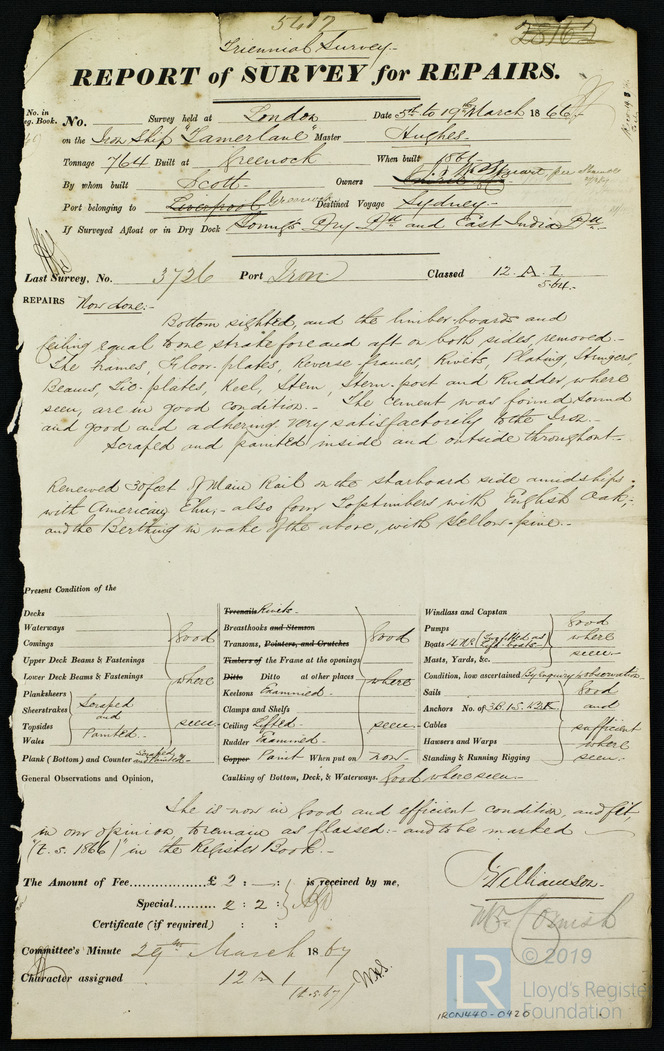 5617
Triennial Survey.
REPORT of SURVEY for REPAIRS.
No. in Reg. Book. No. Survey held at London Date 5th to 19th March 1866
on the Iron Ship "Tamerlane" Master Hughes
Tonnage 764 Built at Greenock When built 1861
By whom built Scott Owners
Port belonging to Liverpool Greenock Destined Voyage Sydney
If Surveyed Afloat or in Dry Dock Dry Dk and East India Dk
Last Survey, No. 3726 Port Iron Classed 12 A. 1.
5.64.
REPAIRS Now done:-
Bottom sighted, and the limber-boards and
Ceiling equal to one strake fore and aft on both sides, removed.-
The frames, Floor-plates, Reverse-frames, Rivets, Plating, Stringers
Beams, Tie-plates, Keel, Stem, Stern-post and Rudder, where
seen, are in good condition.- The Cement was found sound
and good and adhering very satisfactorily to the Iron.-
Scraped and painted inside and outside throughout.-
Renewed 30 feet of Main Rail on the starboard side amidships
with American Elm;- also four Toptimbers with English Oak;
and the Berthing in wake of the above, with yellow-pine.-
Present Condition of the
Decks
Waterways
Comings good
Upper Deck Beams & Fastenings
Lower Deck Beams & Fastenings where
Planksheers Scraped
Sheerstrakes and
Topsides Painted seen
Wales
Plank (Bottom) and Counter Scraped and Painted
General Observations and Opinion,
Treenails Rivets
Breasthooks and Stemson
Transoms, Pointers, and Crutches good
Timbers of the Frame at the openings
Ditto Ditto at other places where
Keelsons Examined
Clamps and Shelfs
Ceiling Lifted seen
Rudder Examined
Copper Paint When put on now
Caulking of Bottom, Deck, & Waterways. Good where seen
Windlass and Capstan
Pumps good
Boats where
Masts, Yards, &c. seen
Condition, how ascertained By Enquiry & Observation
Sails Good
Anchors No. of 3B. 1S. 2K and
Cables sufficient
Hawsers and Warps where
Standing & Running Rigging seen
She is now in good and efficient condition, and fit,
in our opinion, to remain as Classed:- and to be marked
"(t.s. 1866)" in the Register Book.-
The Amount of Fee £ 2 : - : is received by me,
Special 2 : 2 :
Certificate (if required) : :
J Williamson
Mr Cornish
Committee's Minute 29th March 1867
Character assigned 12 A 1
(t.s.67)
© 2019
LR Lloyd's Register
Foundation
IRON440-0420